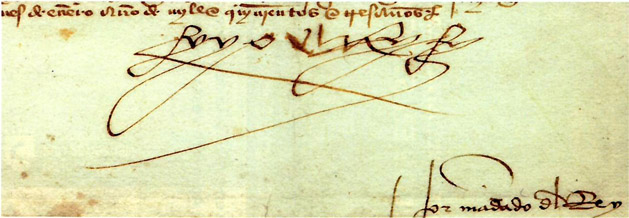 mes de enero año de myll e quinientos e tres años
yo el Rey
por mãdado del Rey